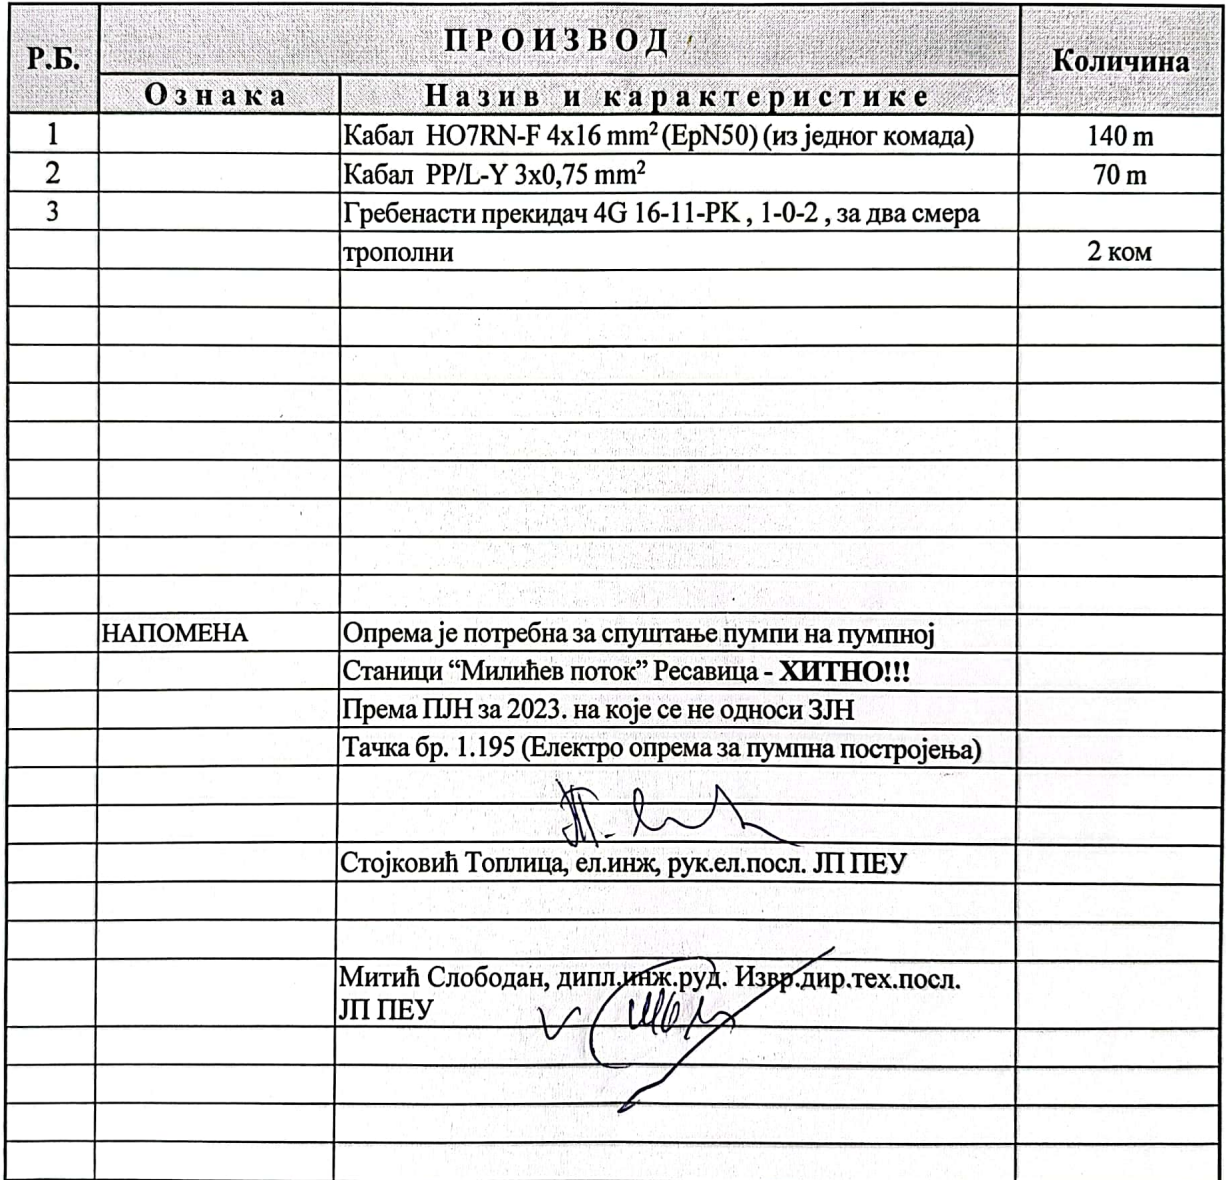 Р.Б.
ПРОИЗВОД
Количина
Ознака
Назив и карактеристике
1
Кабал HO7RN-F 4x16 mm² (EpN50) (из једног комада)
140 m
2
Кабал PP/L-Y 3x0,75 mm²
70 m
3
Гребенасти прекидач 4G 16-11-PK , 1-0-2 , за два смера
трополни
2 ком
НАПОМЕНА
Опрема је потребна за спуштање пумпи на пумпној
Станици “Милићев поток” Ресавица - ХИТНО!!!
Према ПЈН за 2023. на које се не односи ЗЈН
Тачка бр. 1.195 (Електро опрема за пумпна постројења)
Стојковић Топлица, ел.инж, рук.ел.посл. ЈП ПЕУ
Митић Слободан, дипл.инж.руд. Извр.дир.тех.посл.
ЈП ПЕУ